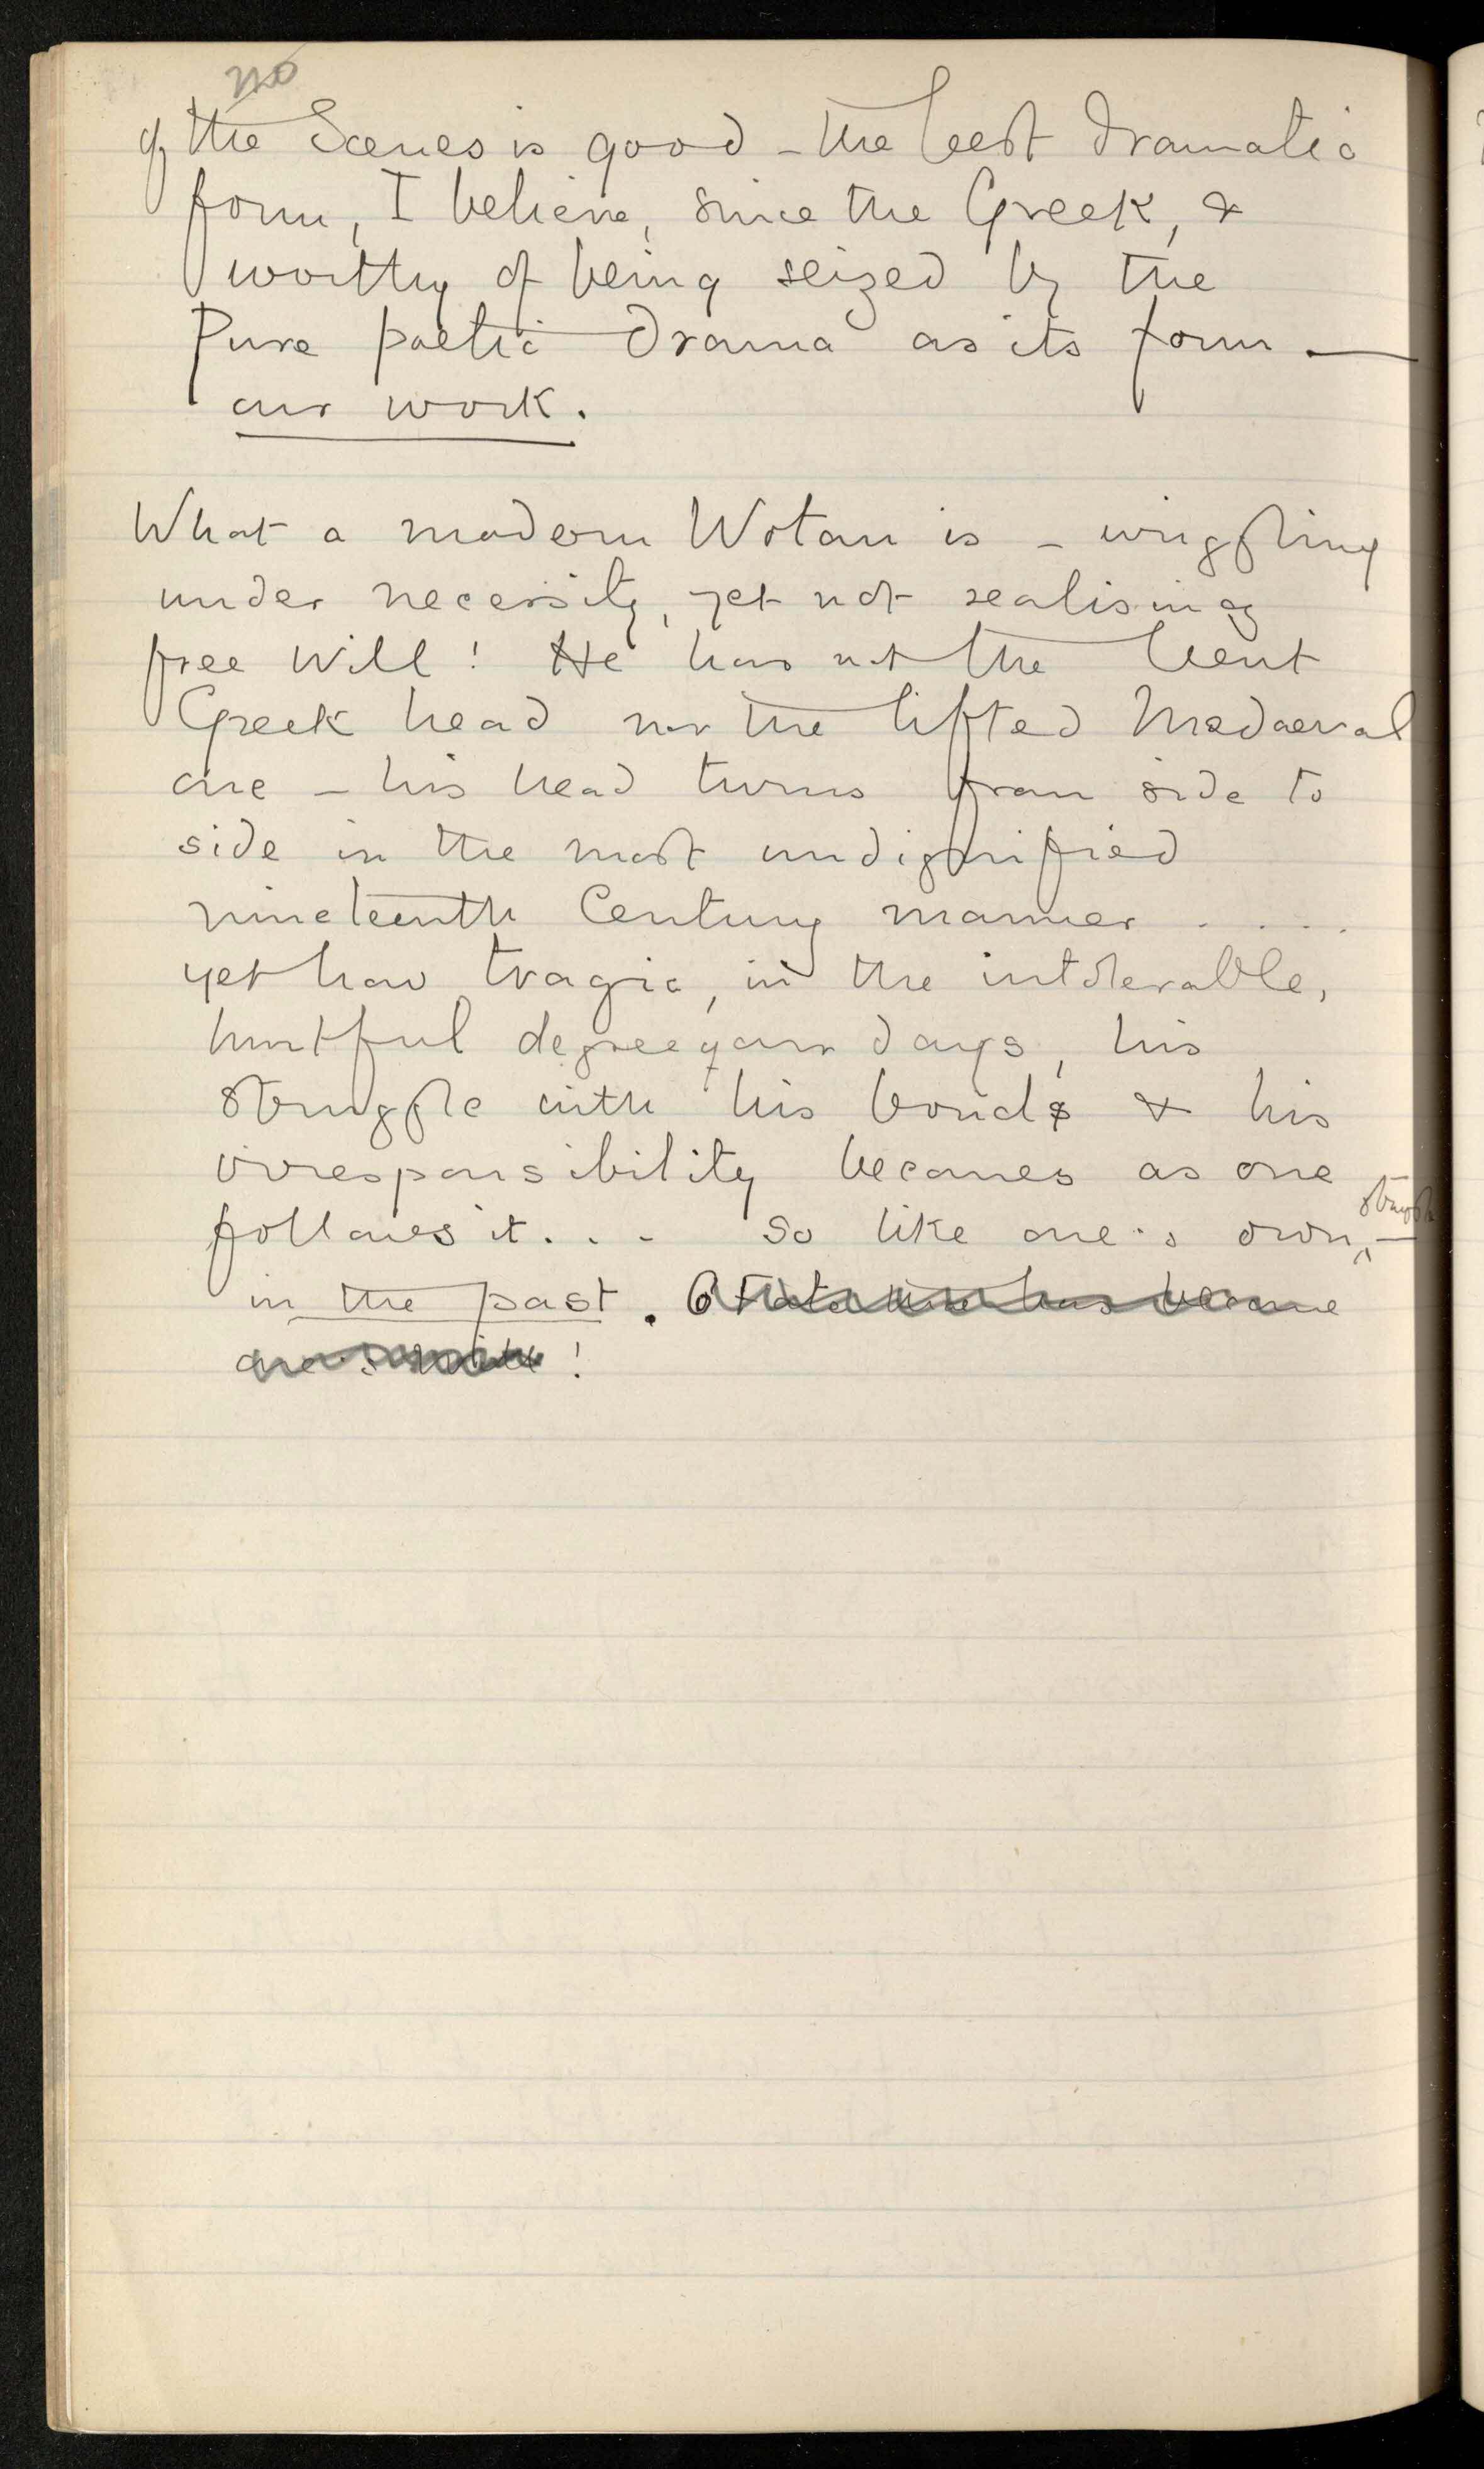 no
of the Scenes is good – the best dramatic
form, I believe, since the Greek, &
worthy of being seized by the
Pure poetic drama as its form —
our work.
What a modern Wotan is – wriggling
under necessity, yet not realising
free will! He has not the bent
Greek head nor the lifted Mediaeval
one – his head turns from side to
side in the most undignified
nineteenth Century manner . . . .
yet how tragic, in the intolerable,
hurtful degree of our days, his
struggle with his bonds & his
irresponsibility becomes as one
follows it. . . so like one's own, struggle –
in the past. O Fate has become
one's !